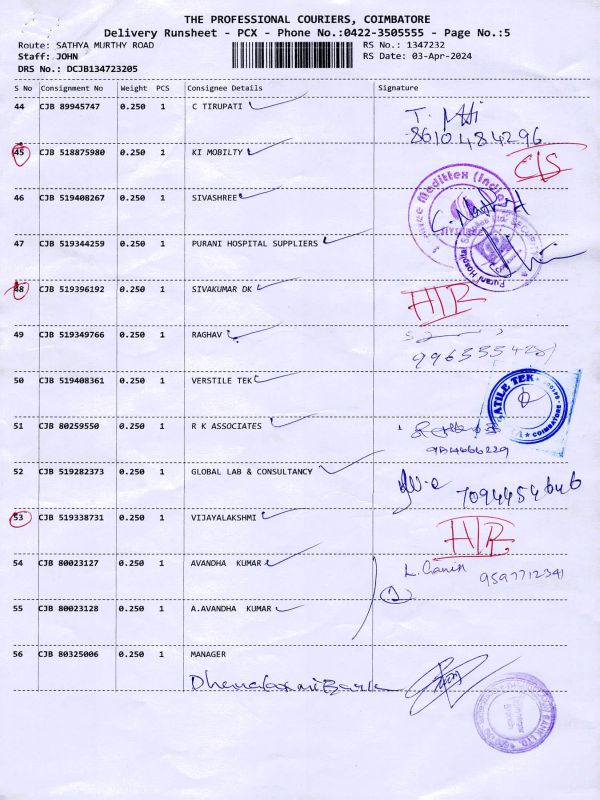 THE PROFESSIONAL COURIERS, COIMBATORE
Delivery Runsheet - PCX - Phone No.:0422-3505555 - Page No.:5
Route: SATHYA MURTHY ROAD RS No.: 1347232
Staff: JOHN RS Date: 03-Apr-2024
DRS No.: DCJB134723205
S No Consignment No Weight PCS Consignee Details Signature
44 CJB 89945747 0.250 1 C TIRUPATI
8610484296
45 CJB 518875980 0.250 1 KI MOBILTY C/S
46 CJB 519408267 0.250 1 SIVASHREE
47 CJB 519344259 0.250 1 PURANI HOSPITAL SUPPLIERS
48 CJB 519396192 0.250 1 SIVAKUMAR DK H/R
49 CJB 519349766 0.250 1 RAGHAV
50 CJB 519408361 0.250 1 VERSTILE TEK
51 CJB 80259550 0.250 1 R K ASSOCIATES
52 CJB 519282373 0.250 1 GLOBAL LAB & CONSULTANCY
7094454646
53 CJB 519338731 0.250 1 VIJAYALAKSHMI H/R
54 CJB 80023127 0.250 1 AVANDHA KUMAR 9597712341
2
55 CJB 80023128 0.250 1 A.AVANDHA KUMAR
56 CJB 80325006 0.250 1 MANAGER